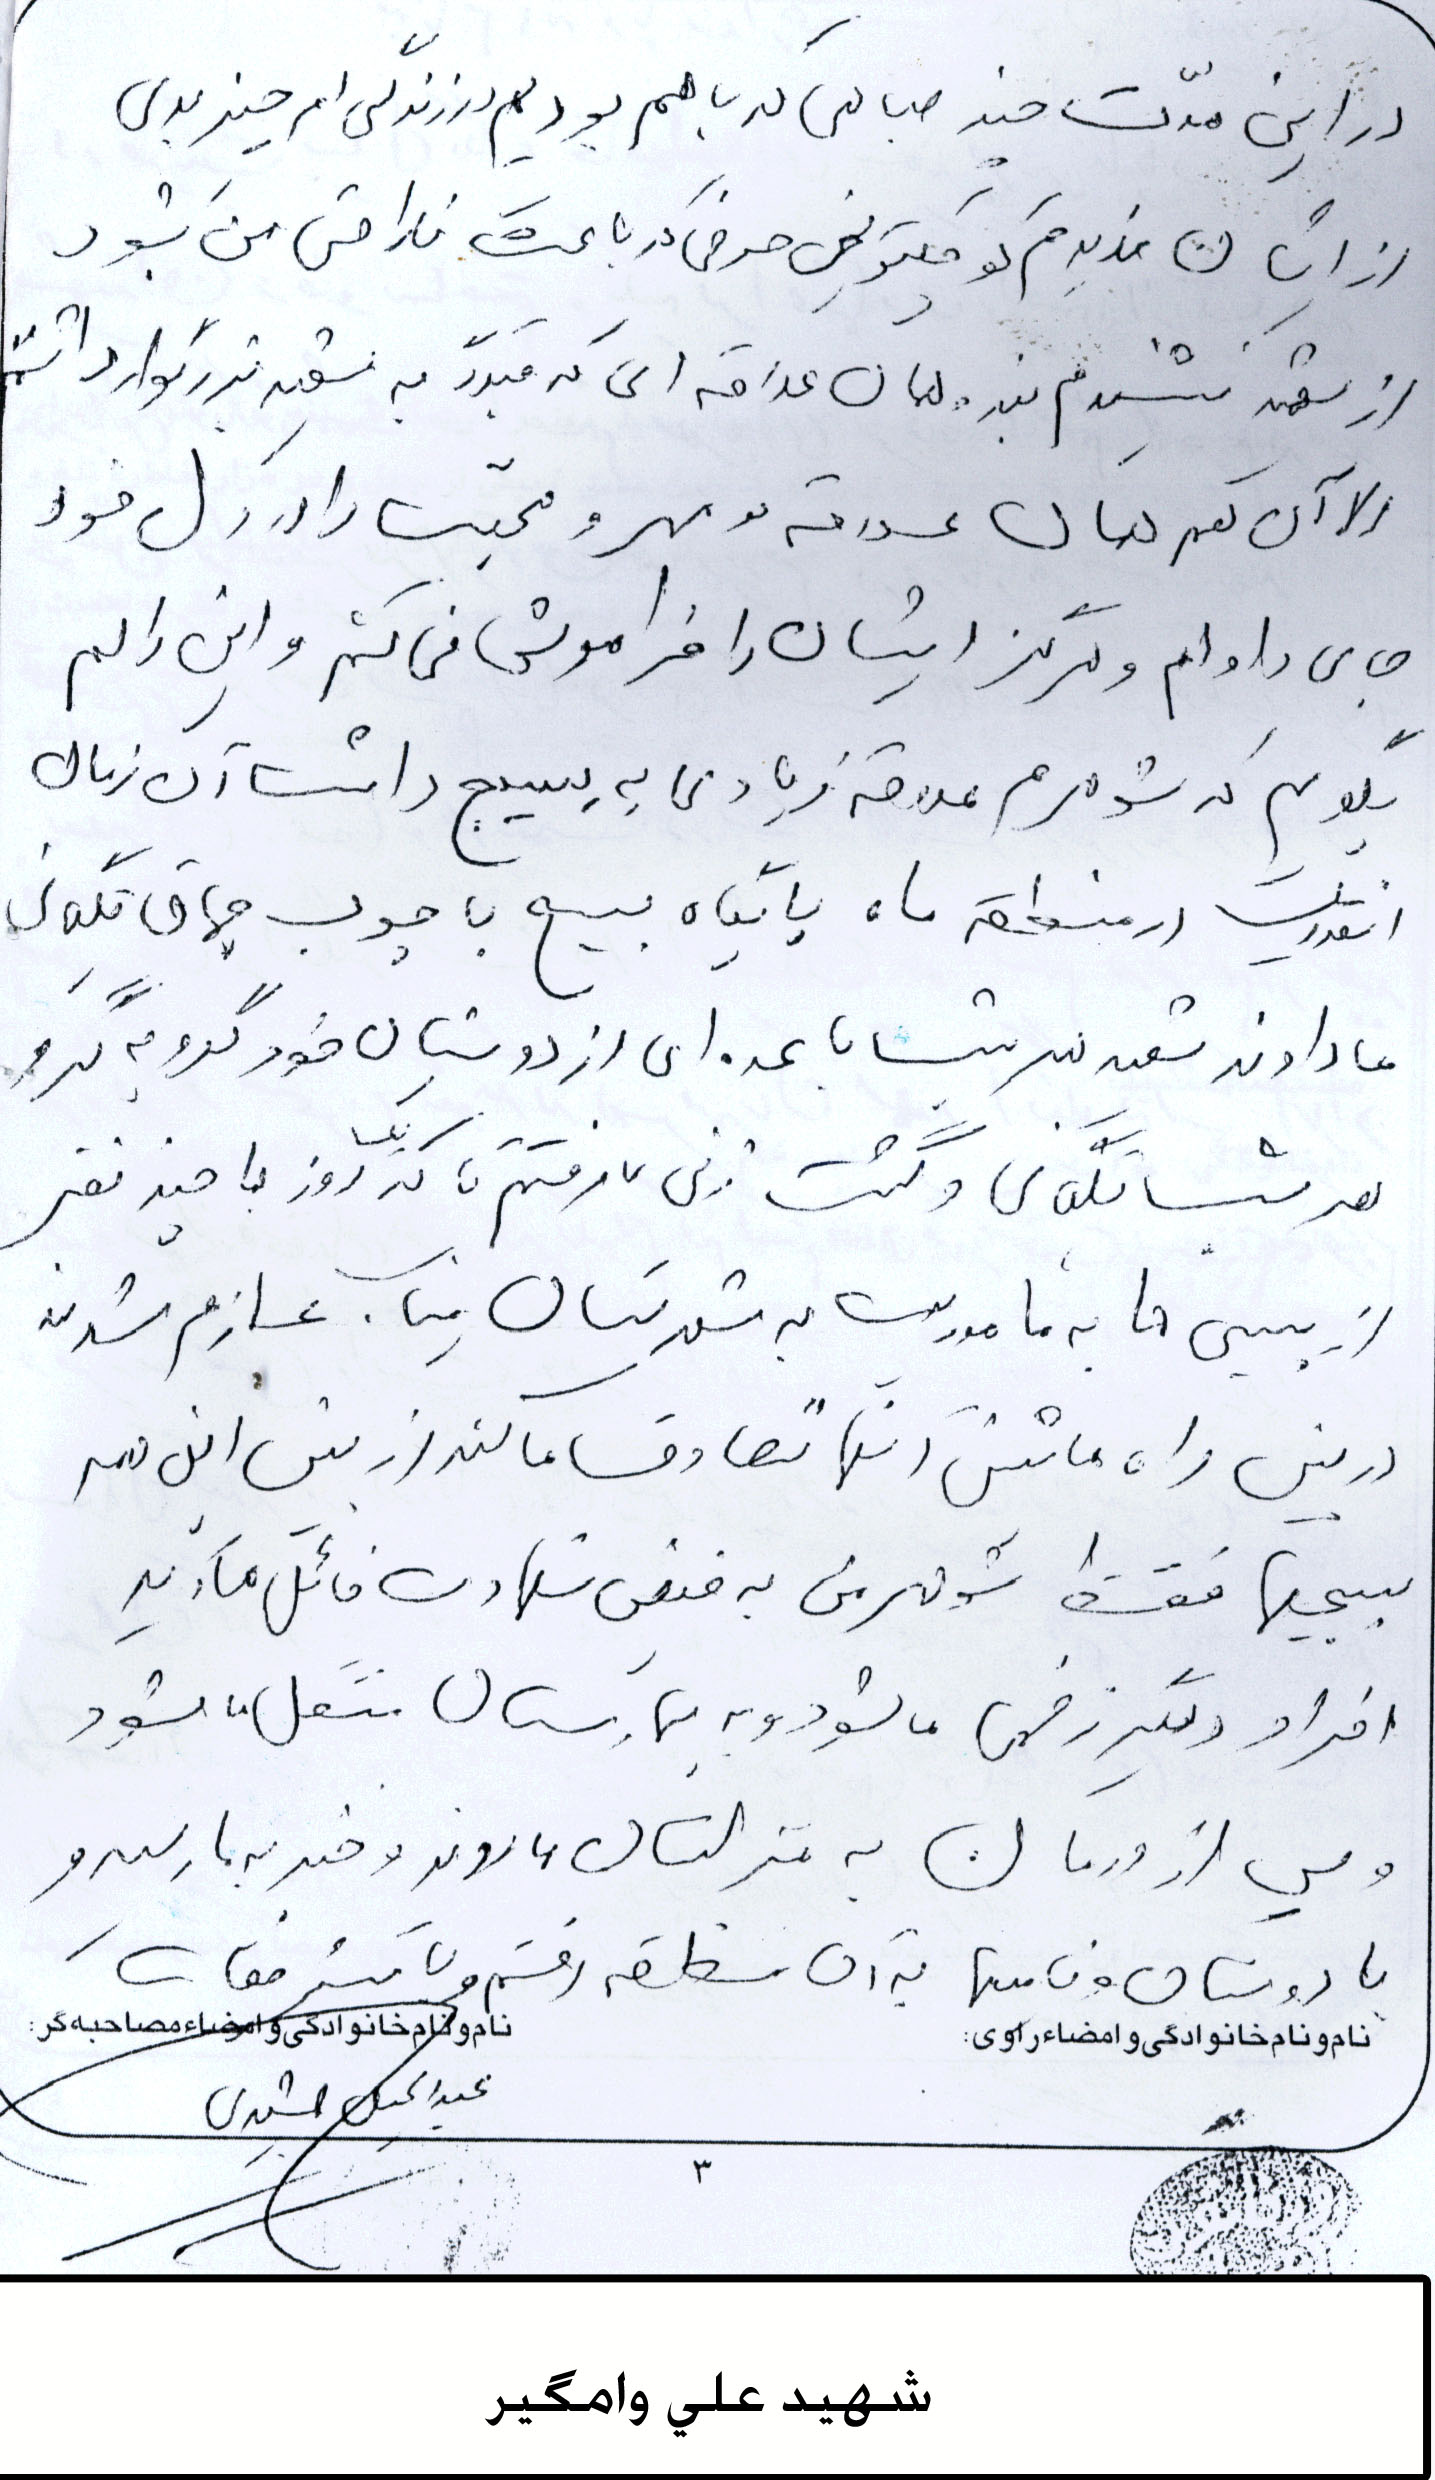 در این مدّت چند صباحی که با هم بودیم در زندگی ام چیز بدی
از ایشان ندیدم که هیچگونه حرفی که باعث ناراحتی من بشود
از شهید نشنیدم بنده همان علاقه ای که قبلاً به شهید بزرگوار داشتم
الا آن هم همان علاقه و مهر و محبت را در دل خود
جای داده ام و هرگز ایشان را فراموش نمی کنم و این را هم
بگویم که شوهرم علاقه زیادی به بسیج داشت آن زمان
انقلاب در منطقه ما پایگاه بسیج با چوب چماق نگهبانی
می دادند شهید هر شب با عده ای از دوستان خود گروه به گروه
هر شب نگهبانی و گشت زنی می رفتند تا که یک روز با چند نفر
از بسیجی ها به مأموریت به شهرستان میناب عازم شدند
در بین راه ماشین آنها تصادف می کند از بین این همه
بسیجیها فقط شوهر من به فیض شهادت نائل می آید
افراد دیگر زخمی می شود و به بیمارستان منتقل می شود
و پس از درمان به منزلشان می روند و خبر به ما رسید و
با دوستان و فامیلها به آن منطقه رفتیم و با
نام و نام خانوادگی و امضاء راوی:
نام و نام خانوادگی و امضاء مصاحبه گر:
۳
شهيد علي وامگير